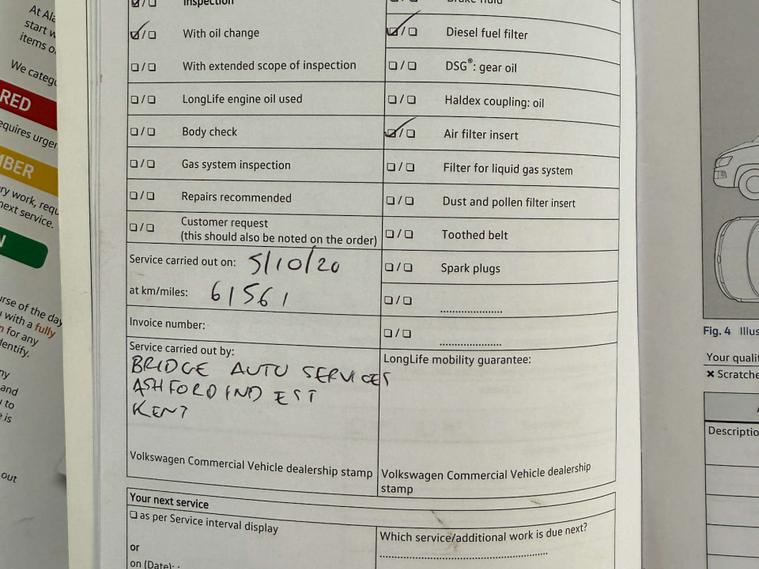 At Ala
start w
items o
We catego
RED
equires urgen
BER
ry work, requ
next service.
N
urse of the day
with a fully
n for any
dentify.
ny
and
to
e is
out
Inspection
With oil change
With extended scope of inspection
LongLife engine oil used
Body check
Gas system inspection
Repairs recommended
Customer request
(this should also be noted on the order)
Service carried out on: 5/10/20
at km/miles: 61561
Invoice number:
Service carried out by:
BRIDGE AUTO SERVICES
ASHFORD IND EST
KENT
Volkswagen Commercial Vehicle dealership stamp
Brake fluid
Diesel fuel filter
DSG®: gear oil
Haldex coupling: oil
Air filter insert
Filter for liquid gas system
Dust and pollen filter insert
Toothed belt
Spark plugs
LongLife mobility guarantee:
Volkswagen Commercial Vehicle dealership
stamp
Your next service
as per Service interval display
or
on (Date):
Which service/additional work is due next?
Fig. 4 Illus
Your qualit
× Scratche
Descriptio